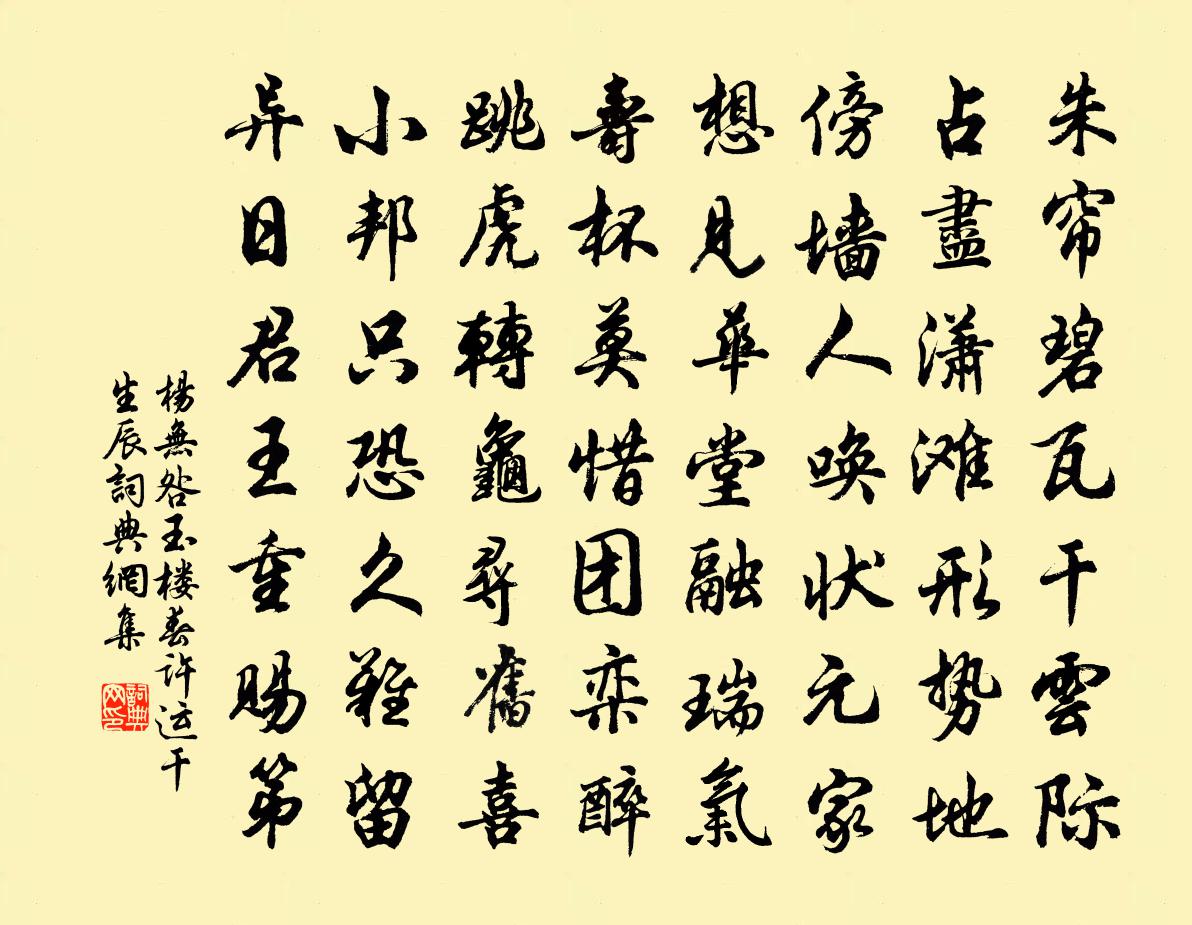 朱帘碧瓦干雲际
占盡瀟滩形势地
傍墙人唤状元家
想見華堂融瑞氣
壽杯莫惜团栾醉
跳虎轉龜尋舊喜
小邦只恐久難留
异日君王重賜第
楊無咎玉楼春许运干
生辰詞典網集
詞典网印